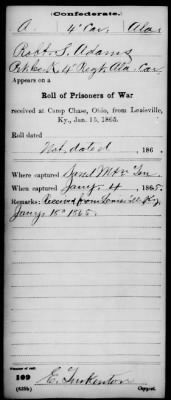 Confederate.
A. 4" Cav. Ala.
Robt. S. Adams
4" Regt. Ala. Cav.
Appears on a
Roll of Prisoners of War
received at Camp Chase, Ohio, from Louisville,
Ky., Jan. 15, 1865.
Roll dated
Not dated , 186 .
Where captured
When captured Jany. 4 , 1865.
Remarks: Received from Louisville Ky.
Jany. 15" 1865.
Number of roll:
109
(639b) Copyist.